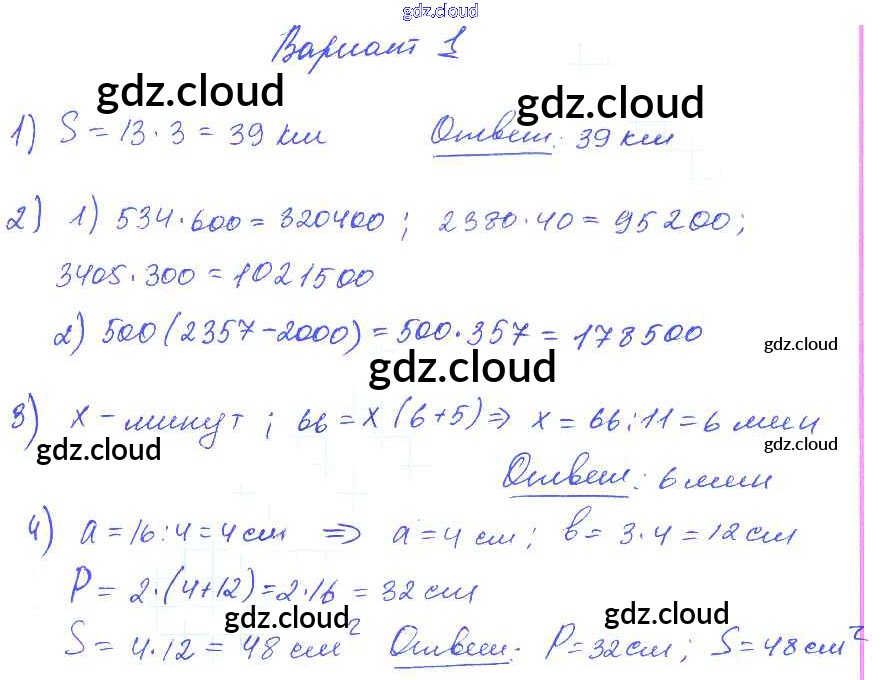 gdz.cloud
Вариант 1
gdz.cloud
gdz.cloud
1) S = 13 · 3 = 39 км Ответ: 39 км
2) 1) 534 · 600 = 320400 ; 2380 · 40 = 95200;
3405 · 300 = 1021500
2) 500(2357-2000) = 500 · 357 = 178500
gdz.cloud
gdz.cloud
3) x - минут ; 66 = x (6+5) ⇒ x = 66 : 11 = 6 мин
gdz.cloud
gdz.cloud
Ответ: 6 мин
4) a = 16 : 4 = 4 см ⇒ a = 4 см ; b = 3 · 4 = 12 см
P = 2 · (4+12) = 2 · 16 = 32 см
gdz.cloud
gdz.cloud
S = 4 · 12 = 48 см² Ответ: P = 32 см ; S = 48 см²